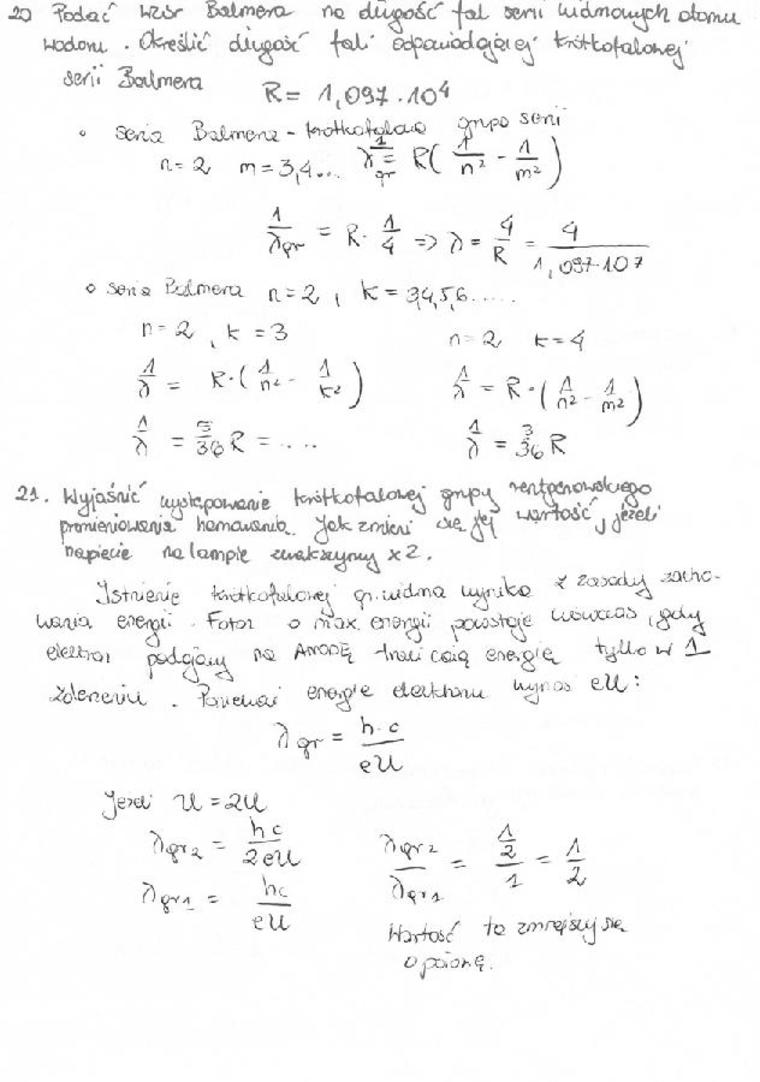 20 Podać wzór Balmera na długość fal serii widmowych atomu
wodoru. Określić długość fali odpowiadającej krótkofalowej
serii Balmera
R = 1,097 · 10⁴
• seria Balmera - krótkofalowa grupa serii
n = 2 m = 3,4... 1/λgr = R ( 1/n² - 1/m² )
1/λgr = R · 1/4 => λ = 4/R = 4/1,097·107
• seria Balmera n = 2, k = 3,4,5,6.....
n = 2, k = 3 n = 2 k = 4
1/λ = R·( 1/n² - 1/k² ) 1/λ = R·( 1/n² - 1/m² )
1/λ = 5/36 R = .... 1/λ = 3/36 R
21. Wyjaśnić występowanie krótkofalowej grupy rentgenowskiego
promieniowania hamowania. Jak zmieni się jej wartość, jeżeli
napięcie na lampie zwiększymy x2.
Istnienie krótkofalowej gr. widma wynika z zasady zacho-
wania energii. Foton o max. energii powstaje wówczas, gdy
elektron padający na ANODĘ traci całą energię tylko w 1
zderzeniu. Ponieważ energie elektronu wynosi eU:
λgr = h·c/eU
Jeżeli U = 2U
λgr2 = hc/2eU λgr2/λgr1 = 1/2/1 = 1/2
λgr1 = hc/eU
Wartość ta zmniejszy się
o połowę.